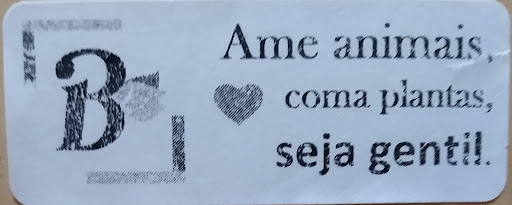 B
Ame animais,
coma plantas,
seja gentil.